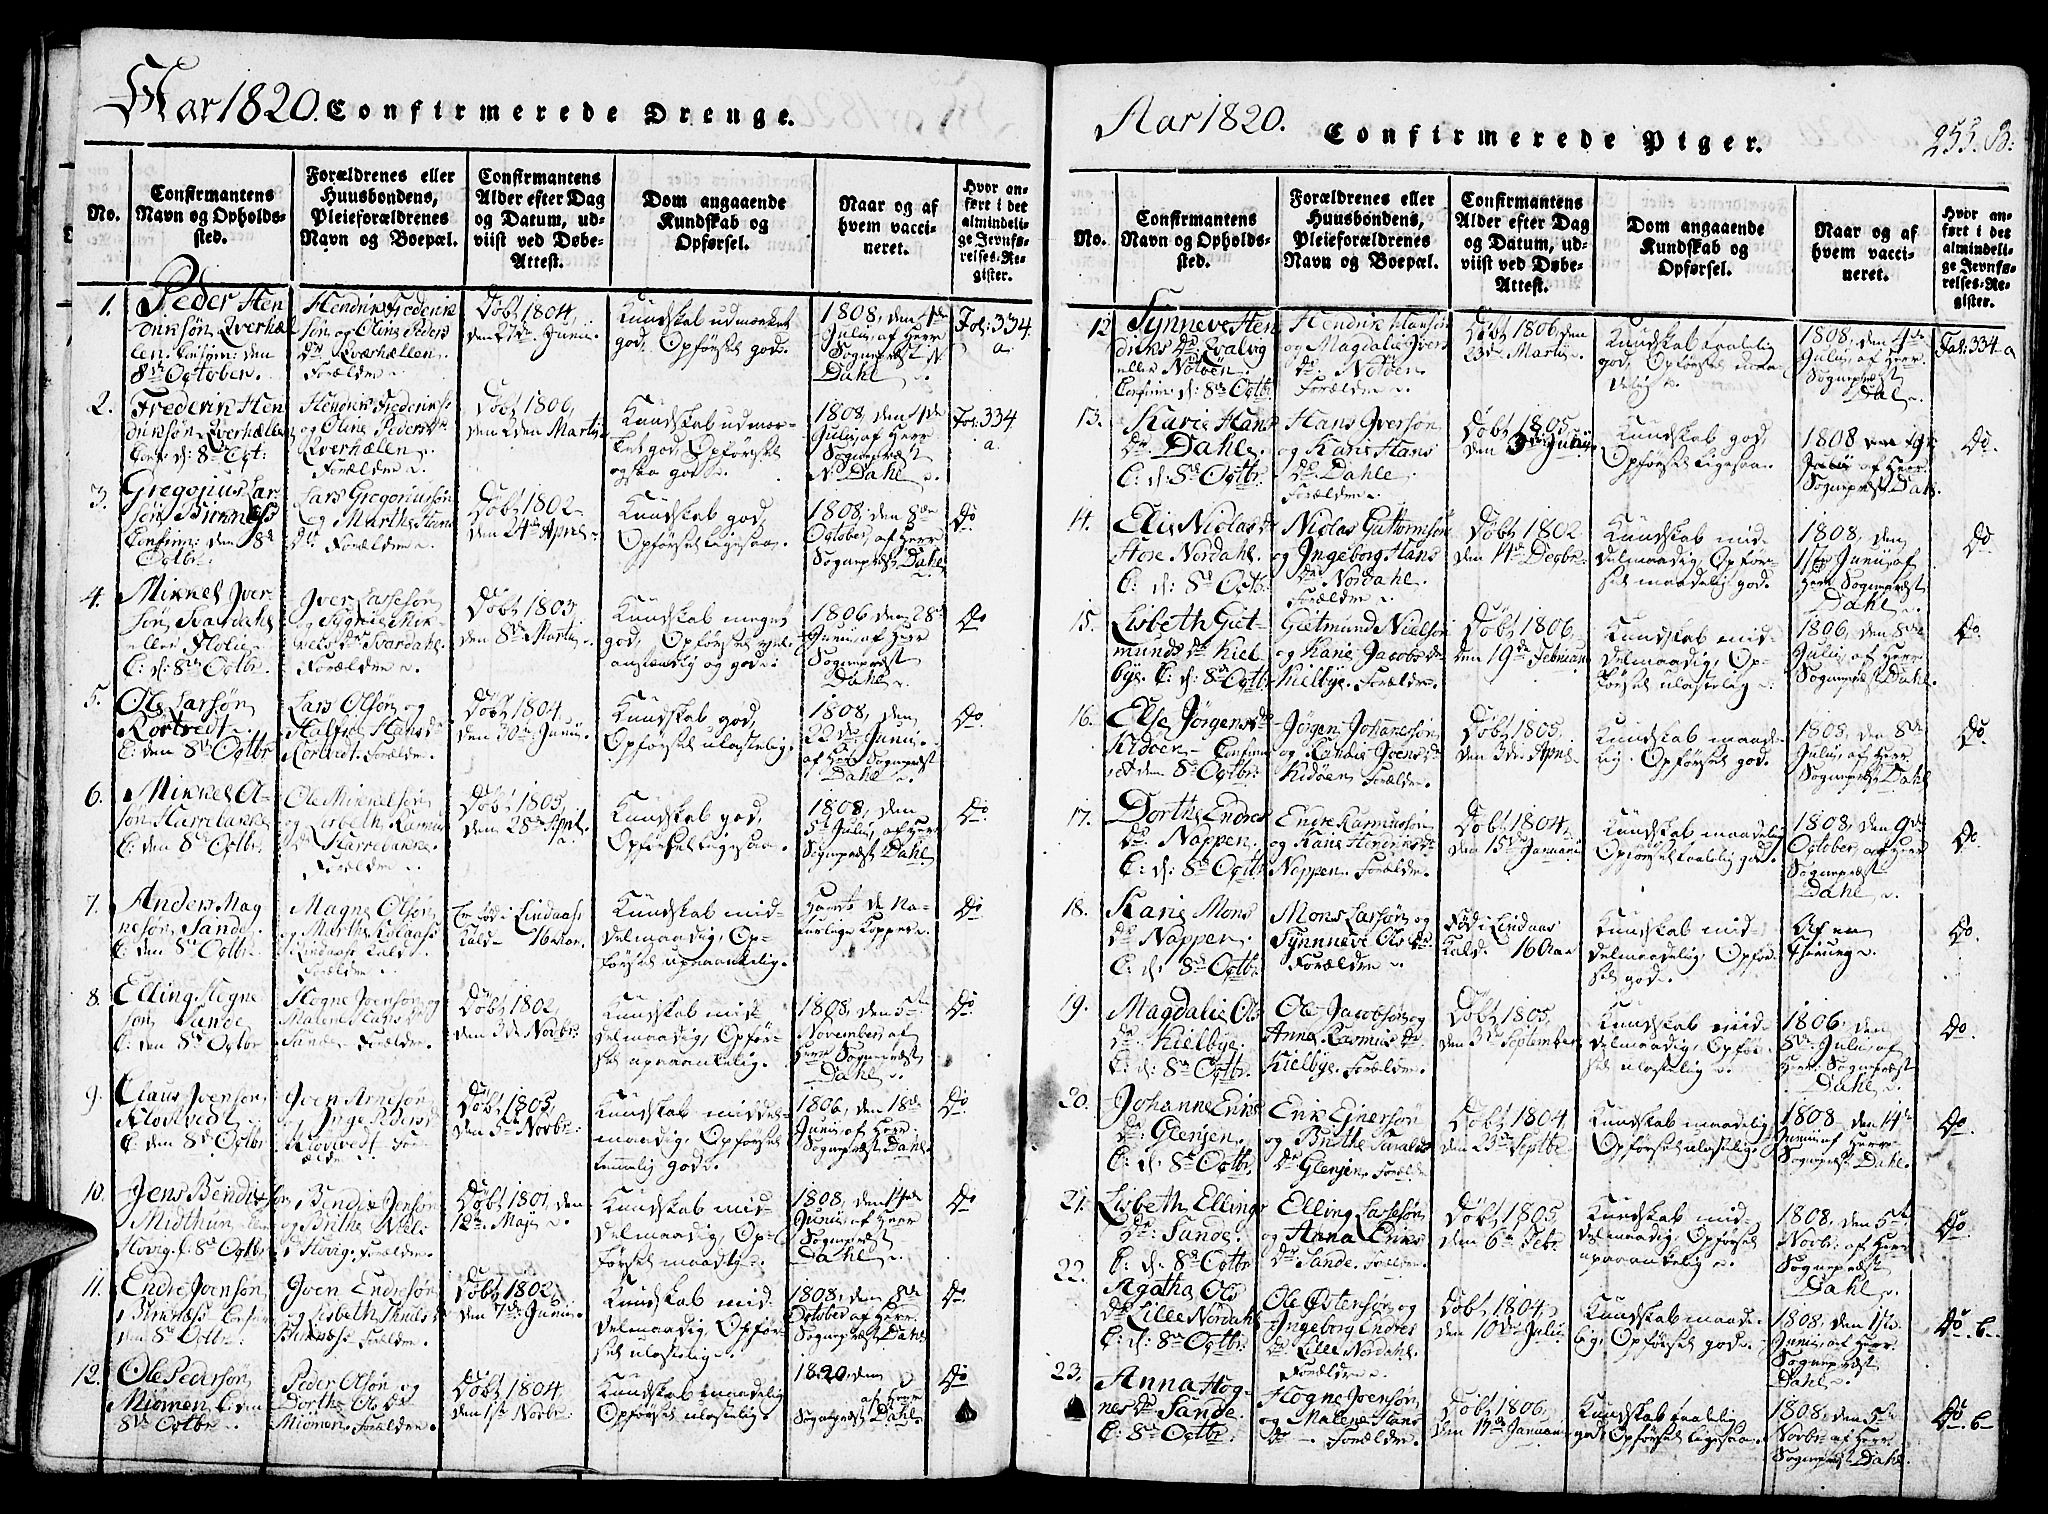 Aar 1820. Confirmerede Drenge.
No.
Confirmantens
Navn og Opholds-
sted.
Forældrenes eller
Huusbondens,
Pleieforældrenes
Navn og Boepæl.
Confirmantens
Alder efter Dag
og Datum, ud-
viist ved Døbe-
Attest.
Dom angaaende
Kundskab og
Opførsel.
Naar og af
hvem vacci-
neret.
Hvor an-
ført i det
almindeli-
ge Jevnfø-
relses-Re-
gister.
1.
Peder Hen
driksøn Kverhæl
len. Confirm: den
8de October.
Hendrik Frederik
søn og Oline Peders
dr Kverhællen.
Forældre
Døbt 1804,
den 27de Junii.
Kundskab udmærket
god, Opførsel god.
1808, den 4de
Julii, af Herr
Sognepræst N
Dahl
Fol: 334
a.
2.
Frederik Hen
driksøn Kverhællen
Conf. d: 8de Oct:
Hendrik Frederiks
og Oline Peders dr
Kverhællen
Forældre
Døbt 1806,
den 2den Martii
Kundskab udmær-
ket god, Opførsel
ogsaa god
1808, den 4de
Julii, af Herr
Sognepræst
N. Dahl
Fol: 334
a
3.
Gregorius Lar
søn Birknæss
Confirm: den 8de
Octbr.
Lars Gregoriussøn
og Marthe Hans
dr Forældre
Døbt 1802
den 24de April
Kundskab god,
Opførsel ligesaa.
1808, den 8de
October, af Herr
Sognepræst Dahl
Do
4.
Mikkel Iver
søn Svardahl
eller Flolie
C: d: 8de Octbr.
Iver Lassesøn
Svardahl.
Forældre
Døbt 1803.
den 8de Martii
Kundskab meget
god, Opførsel
anstændig og god:
1806 den 28de
Junii, af Herr
Sognepræst
Dahl
Do
5.
Ole Larsøn
Kortvedt
C: den 8de Octbr
Lars Olsøn og
Hans dr
Kortvedt. Forældre.
Døbt 1804
den 30de Junii
Kundskab god,
Opførsel ulastelig.
1808, den
22de Junii,
af Herr Sognepræst
Dahl
Do.
6.
Mikkel O-
søn Harrebakke
C: den 8de Octbr.
Ole Mikkelsøn
og Lisbeth Rasmus
dr Harrebakke
Forældre
Døbt 1805,
den 28de April.
Kundskab god,
Opførsel ligesaa.
1808, den
5te Julii, af Herr
Sognepræst Dahl
Do
7.
Anders Mag
nesøn Sande
C: den 8de Octbr.
Magne Olsøn
og Marthe
i Lindaas Kald
Forældre
Er født i Lindaas
Kald 16 Aar.
Kundskab mid-
delmaadig, Op-
førsel upaaankelig.
Havde de Na-
turlige Kopper
Do
8.
Elling Hogne
søn Sande
C: den 8de Octbr
Hogne Joensøn og
Malene Hans dr
Sande Forældre.
Døbt 1802
den 3de Novbr.
Kundskab mid-
delmaadig, Opfør-
sel upaaankelig.
1808, den 5te
November, af
Herr Sognepræst
Dahl
Do
9.
Claus Joensøn
Klovtvedt
C: den 8de Octbr
Joen Arnesøn
og Inge Peders dr
Klovtvedt For-
ældre
Døbt 1805,
den 5te Novbr:
Kundskab middel-
maadig, Opførsel
temmelig god.
1806, den 18de
Junii, af Herr
Sognepræst Dahl.
Do
10.
Jens Bendixsøn
Midthun eller
Hovig. C. 8de Octbr
Bendix Jensøn
og Brithe Niels
dr Hovig. Forældre.
Døbt 1801, den
12te Maji
Kundskab mid-
delmaadig, Op-
førsel maadelig.
1808, den 14de
Junii, af Herr
Sognepræst
Dahl
Do
11.
Endre Joensøn
Birknæss Confirm
den 8de Octbr.
Joen Endresøn
og Lisbeth
Birknæss Forældre.
Døbt 1802
den 7de Junii
Kundskab mid-
delmaadig, Opfør-
sel ulastelig.
1808, den 8de
October af Herr
Sognepræst Dahl
Do
12.
Ole Pedersøn
Miömen. C: den
8de Octbr
Peder Olsøn og
Dorthe Ols dr
Miömen. Forældre
Døbt 1804.
den 1ste Novbr.
Kundskab maadelig
Opførsel ulastelig.
1820, den
af Herr
Sognepræst Dahl
Do
Aar 1820.
Confirmerede Piger.
255. B:
No.
Confirmantens
Navn og Opholds-
sted.
Forældrenes eller
Huusbondens,
Pleieforældrenes
Navn og Boepæl.
Confirmantens
Alder efter Dag
og Datum, ud-
viist ved Døbe-
Attest.
Dom angaaende
Kundskab og
Opførsel.
Naar og af
hvem vacci-
neret.
Hvor an-
ført i det
almindeli-
ge Jevnfø-
relses-Re-
gister.
12
Synneve Hen
driks dr Evalvig
eller Notøen.
Confirm d: 8de Octbr
Hendrik Hansøn
og Magdalie Ivers
dr. Notøen.
Forældre
Døbt 1806, den
23de Martii.
Kundskab taalelig
god, Opførsel maa-
delig.
1808, den 4de
Julii, af Herr
Sognepræst
Dal
Fol: 334 a
13.
Karie Hans
dr Dahle.
C: d: 8de Octbr.
Hans Iversøn
og Karie Hans
dr Dahle
Forældre
Døbt 1805,
den 3de Julii
Kundskab god,
Opførsel ligesaa.
1808 den
Julii af Herr
Sognepræst Dahl.
Do.
14.
Elie Niclas dr
Store Nordahl
C: d: 8de Octbr
Niclas Guttormsøn
og Ingeborg Hans
dr Nordahl.
Forældre
Døbt 1802
den 14de Decbr.
Kundskab mid-
delmaadig, Opfør-
sel maadelig god.
1808, den
1ste Junii, af
Herr Sognepræst
Dahl
Do
15.
Lisbeth Giet-
munds dr Kiel
bye. C: d: 8de Octbr
Gietmund Nielsøn
og Karie Jacobs dr
Kielbye. Forældre.
Døbt 1806,
den 19de Februarii
Kundskab mid-
delmaadig, Op-
førsel ulastelig
1806, den 8de
Julii, af Herr
Sognepræst
Dahl
Do
16.
Else Jørgens dr
Kidøen Confirme
ret den 8de Octbr.
Jørgen Johannesøn
og Joens dr
Kidøen Forældre.
Døbt 1805.
den 3die April
Kundskab maade-
lig. Opførsel god.
1805, den 8de
Julii, af Herr
Sognepræst Dahl
Do.
17.
Dorthe Endres
dr. Nappen.
C: d: 8de Octbr.
Endre Rasmussøn
og Karie Henriks dr
Nappen. Forældre
Døbt 1804.
den 15de Januarii
Kundskab maadelig
Opførsel taalelig god.
1808, den 9de
October, af Herr
Sognepræst
Dahl
Do
18.
Karie Mons
dr. Nappen.
C: d: 8de Octbr
Mons Lassøn og
Synnneve Ols dr.
Forældre
Fød i Lindaas
Kald. 16 Aar
Kundskab mid-
delmaadelig, Opfør
sel god.
Af en
Do.
19.
Magdalie Ols
dr. Kielbye.
C: d: 8de Octbr.
Ole Jacobsøn og
Anne Rasmus dr
Kielbye. Forældre.
Døbt 1805,
den 3die September
Kundskab mid-
delmaadig, Opfør-
sel ulastelig
1806, den
8de Julii, af
Herr Sognepræst
Dahl
Do
20.
Johanne Eriks
dr. Glenjen.
C: d: 8de Octbr
Erik Ejnersøn
og Brithe
dr Glenjen. Forældre
Døbt 1804.
den 23de Septbr.
Kundskab maadelig
Opførsel ulastelig.
1808, den 14de
Junii, af Herr
Sognepræst Dahl.
Do
21.
Lisbeth Ellings
dr. Sande.
C: d: 8de Octbr
Elling Lassesøn
og Anna Eriks
dr. Sande. Forældre
Døbt 1805
den 6te Febr.
Kundskab mid-
delmaadig. Opførsel
upaaankelig
1808, den 5te
Novbr: af Herr
Sognepræst
Dahl
Do
22.
Agatha Ols
dr Lille Nordahl
C: d: 8de Octbr.
Ole Østensøn og
Ingeborg Endres
dr. Lille Nordahl.
Forældre
Døbt 1804
den 10de Julii
Kundskab maade-
lig, Opførsel god.
1808, den 1ste
Junii, af Herr
Sognepræst
Dahl
Do. b
23.
Anna Hog-
nes dr Sande.
C: 8de Octbr.
Hogne Joensøn
og Malene Hans
dr Forældre.
Døbt 1806,
den 17de Januarii
Kundskab taalelig
god, Opførsel ligesaa.
1808, den 5te
Novbr af Herr
Sognepræst Dahl
Do. b